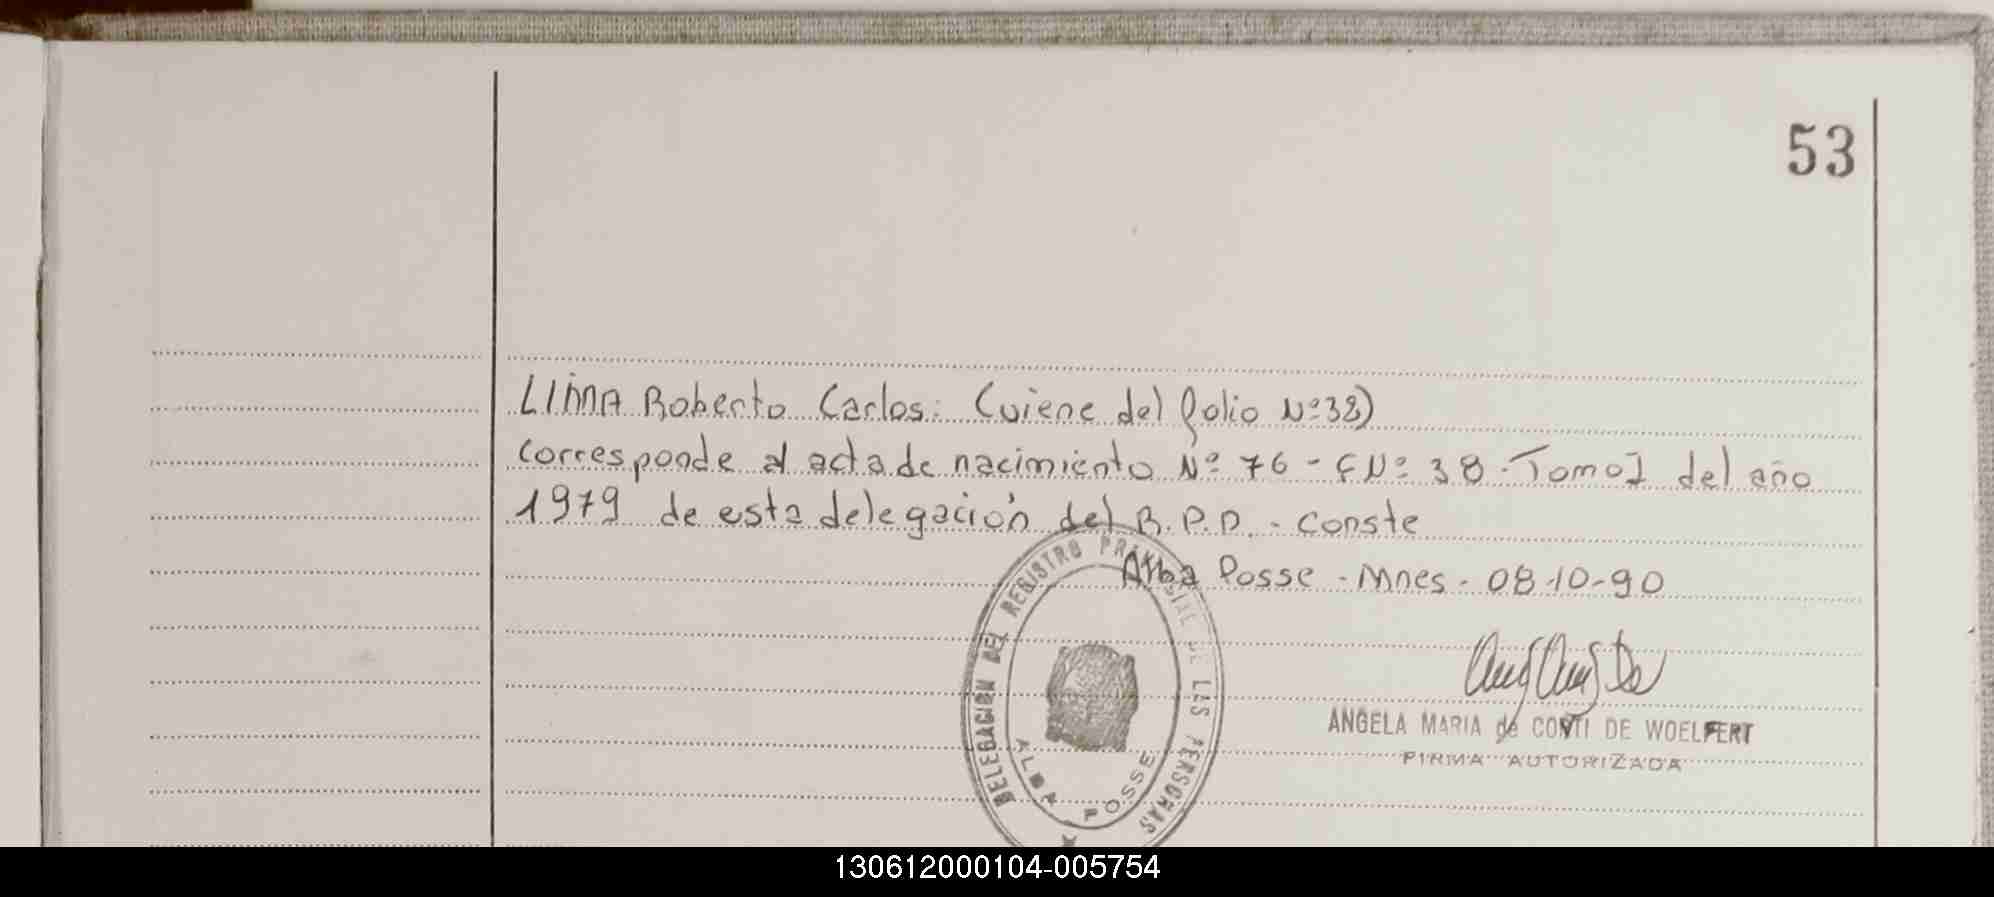 53
LIMA Roberto Carlos: (viene del folio Nº 38)
corresponde al acta de nacimiento Nº 76 - FNº 38 - Tomo I del año
1979 de esta delegación del R.P.P. - Conste
Alba Posse - Mnes - 08-10-90
DELEGACION DEL REGISTRO PROVINCIAL DE LAS PERSONAS
ALBA POSSE
ANGELA MARIA de CONTI DE WOELFERT
FIRMA AUTORIZADA
130612000104-005754